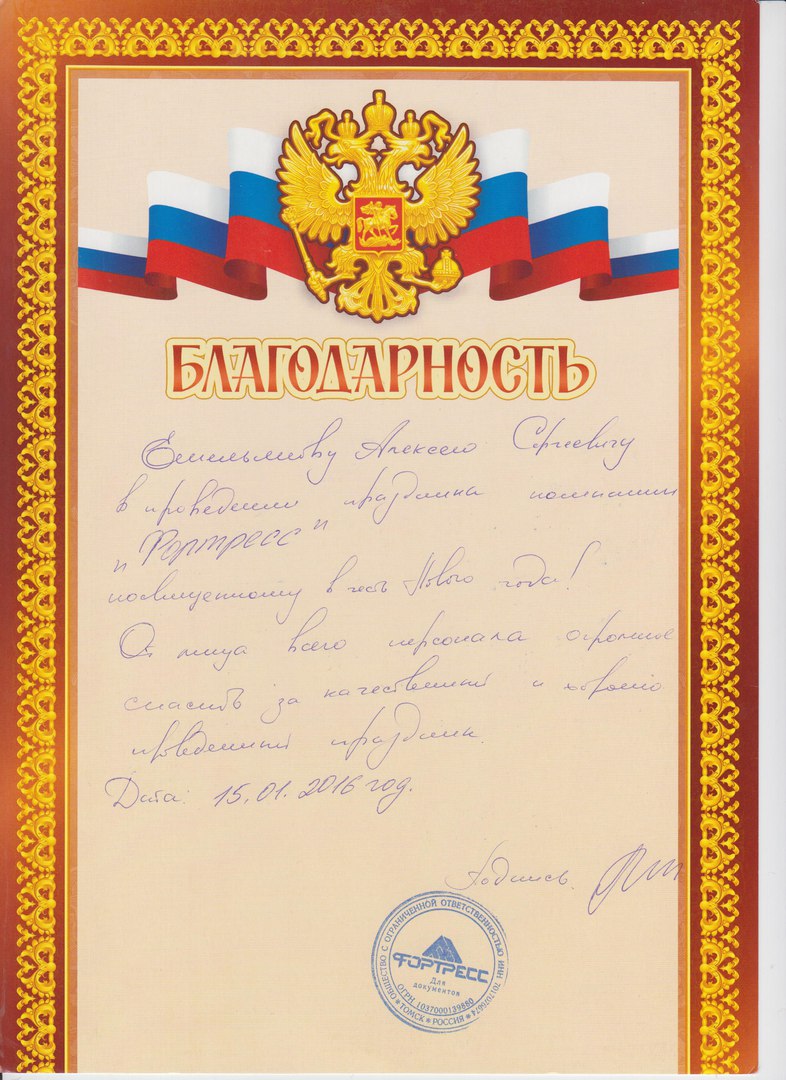 БЛАГОДАРНОСТЬ
Емельянову Алексею Сергеевичу
в проведении праздника компании
"Фортресс"
посвященному в честь Нового года!
От лица всего персонала огромное
спасибо за качественный и хорошо
проведенный праздник.
Дата: 15.01.2016 год.
Подпись
ОБЩЕСТВО С ОГРАНИЧЕННОЙ ОТВЕТСТВЕННОСТЬЮ ИНН 7017075674
ФОРТРЕСС
Для
документов
ОГРН 1037000139880
* ТОМСК * РОССИЯ *